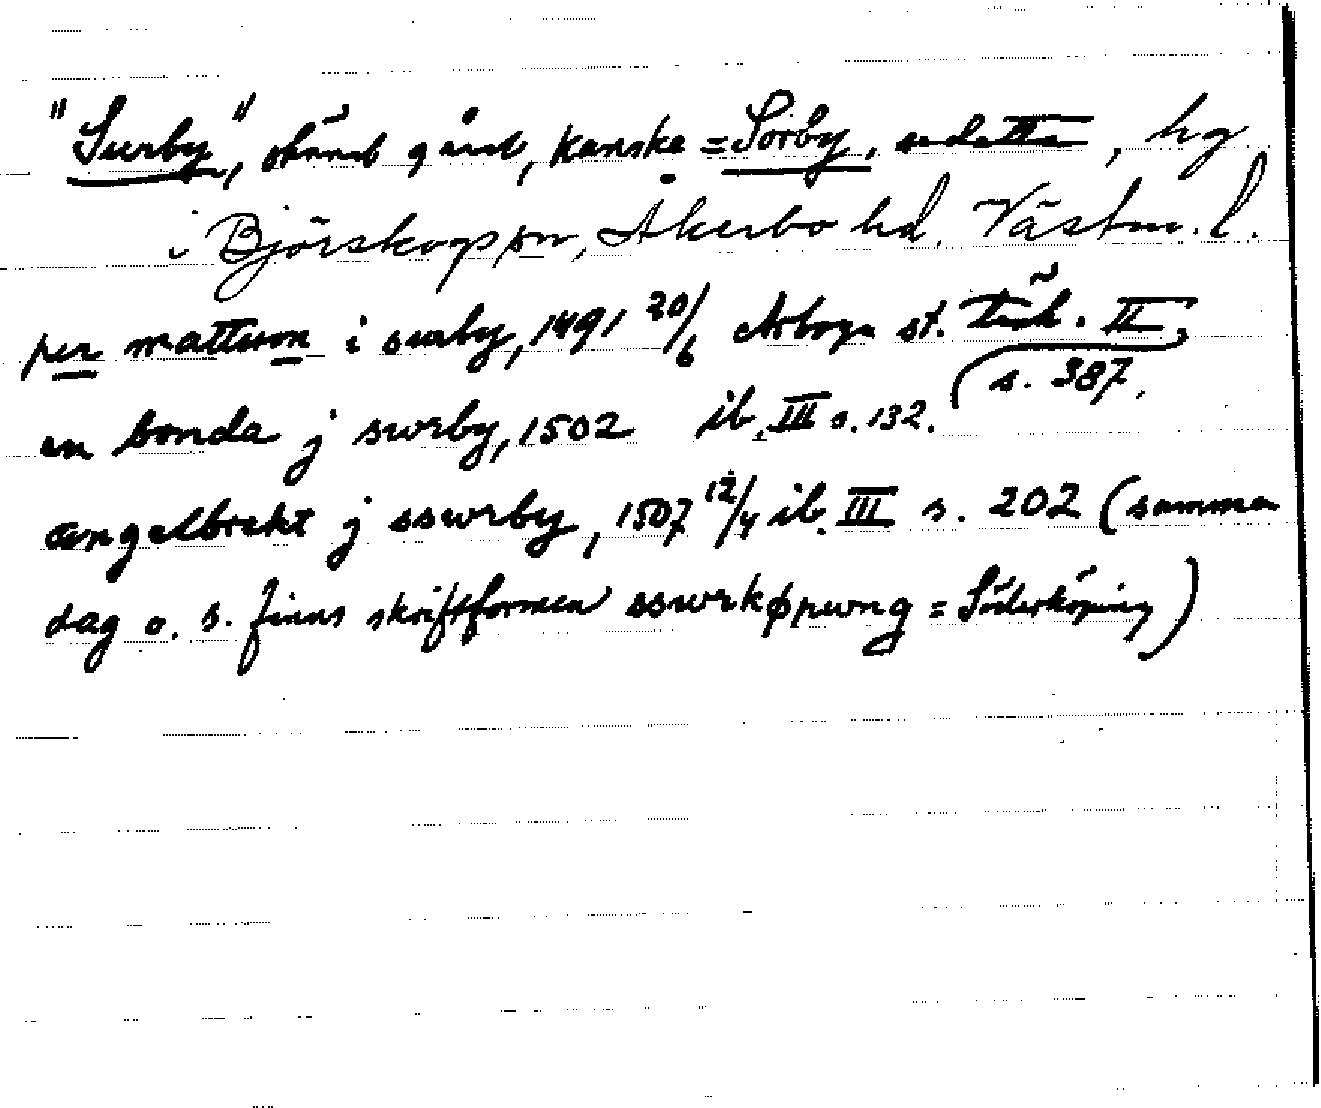 "Surby", okänd gård, kanske = Sörby, se detta, hg
i Björskogs sn, Åkerbo hd, Västm. l.
per mattsson i surby, 1491 20/6 Arboga st. tänk. II
s. 387.
en bonda j swrby, 1502 ib. III s. 132.
ængelbrekt j sswrby, 1507 12/4 ib. III s. 202 (samma
dag o. s. finns skriftformen sswrkøpwng = Söderköping)